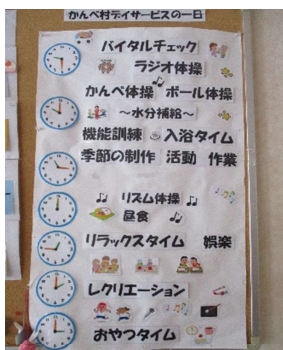 かんべ村デイサービスの一日
バイタルチェック
ラジオ体操
かんべ体操 ボール体操
～水分補給～
機能訓練 入浴タイム
季節の制作 活動 作業
リズム体操
昼食
リラックスタイム 娯楽
レクリエーション
おやつタイム